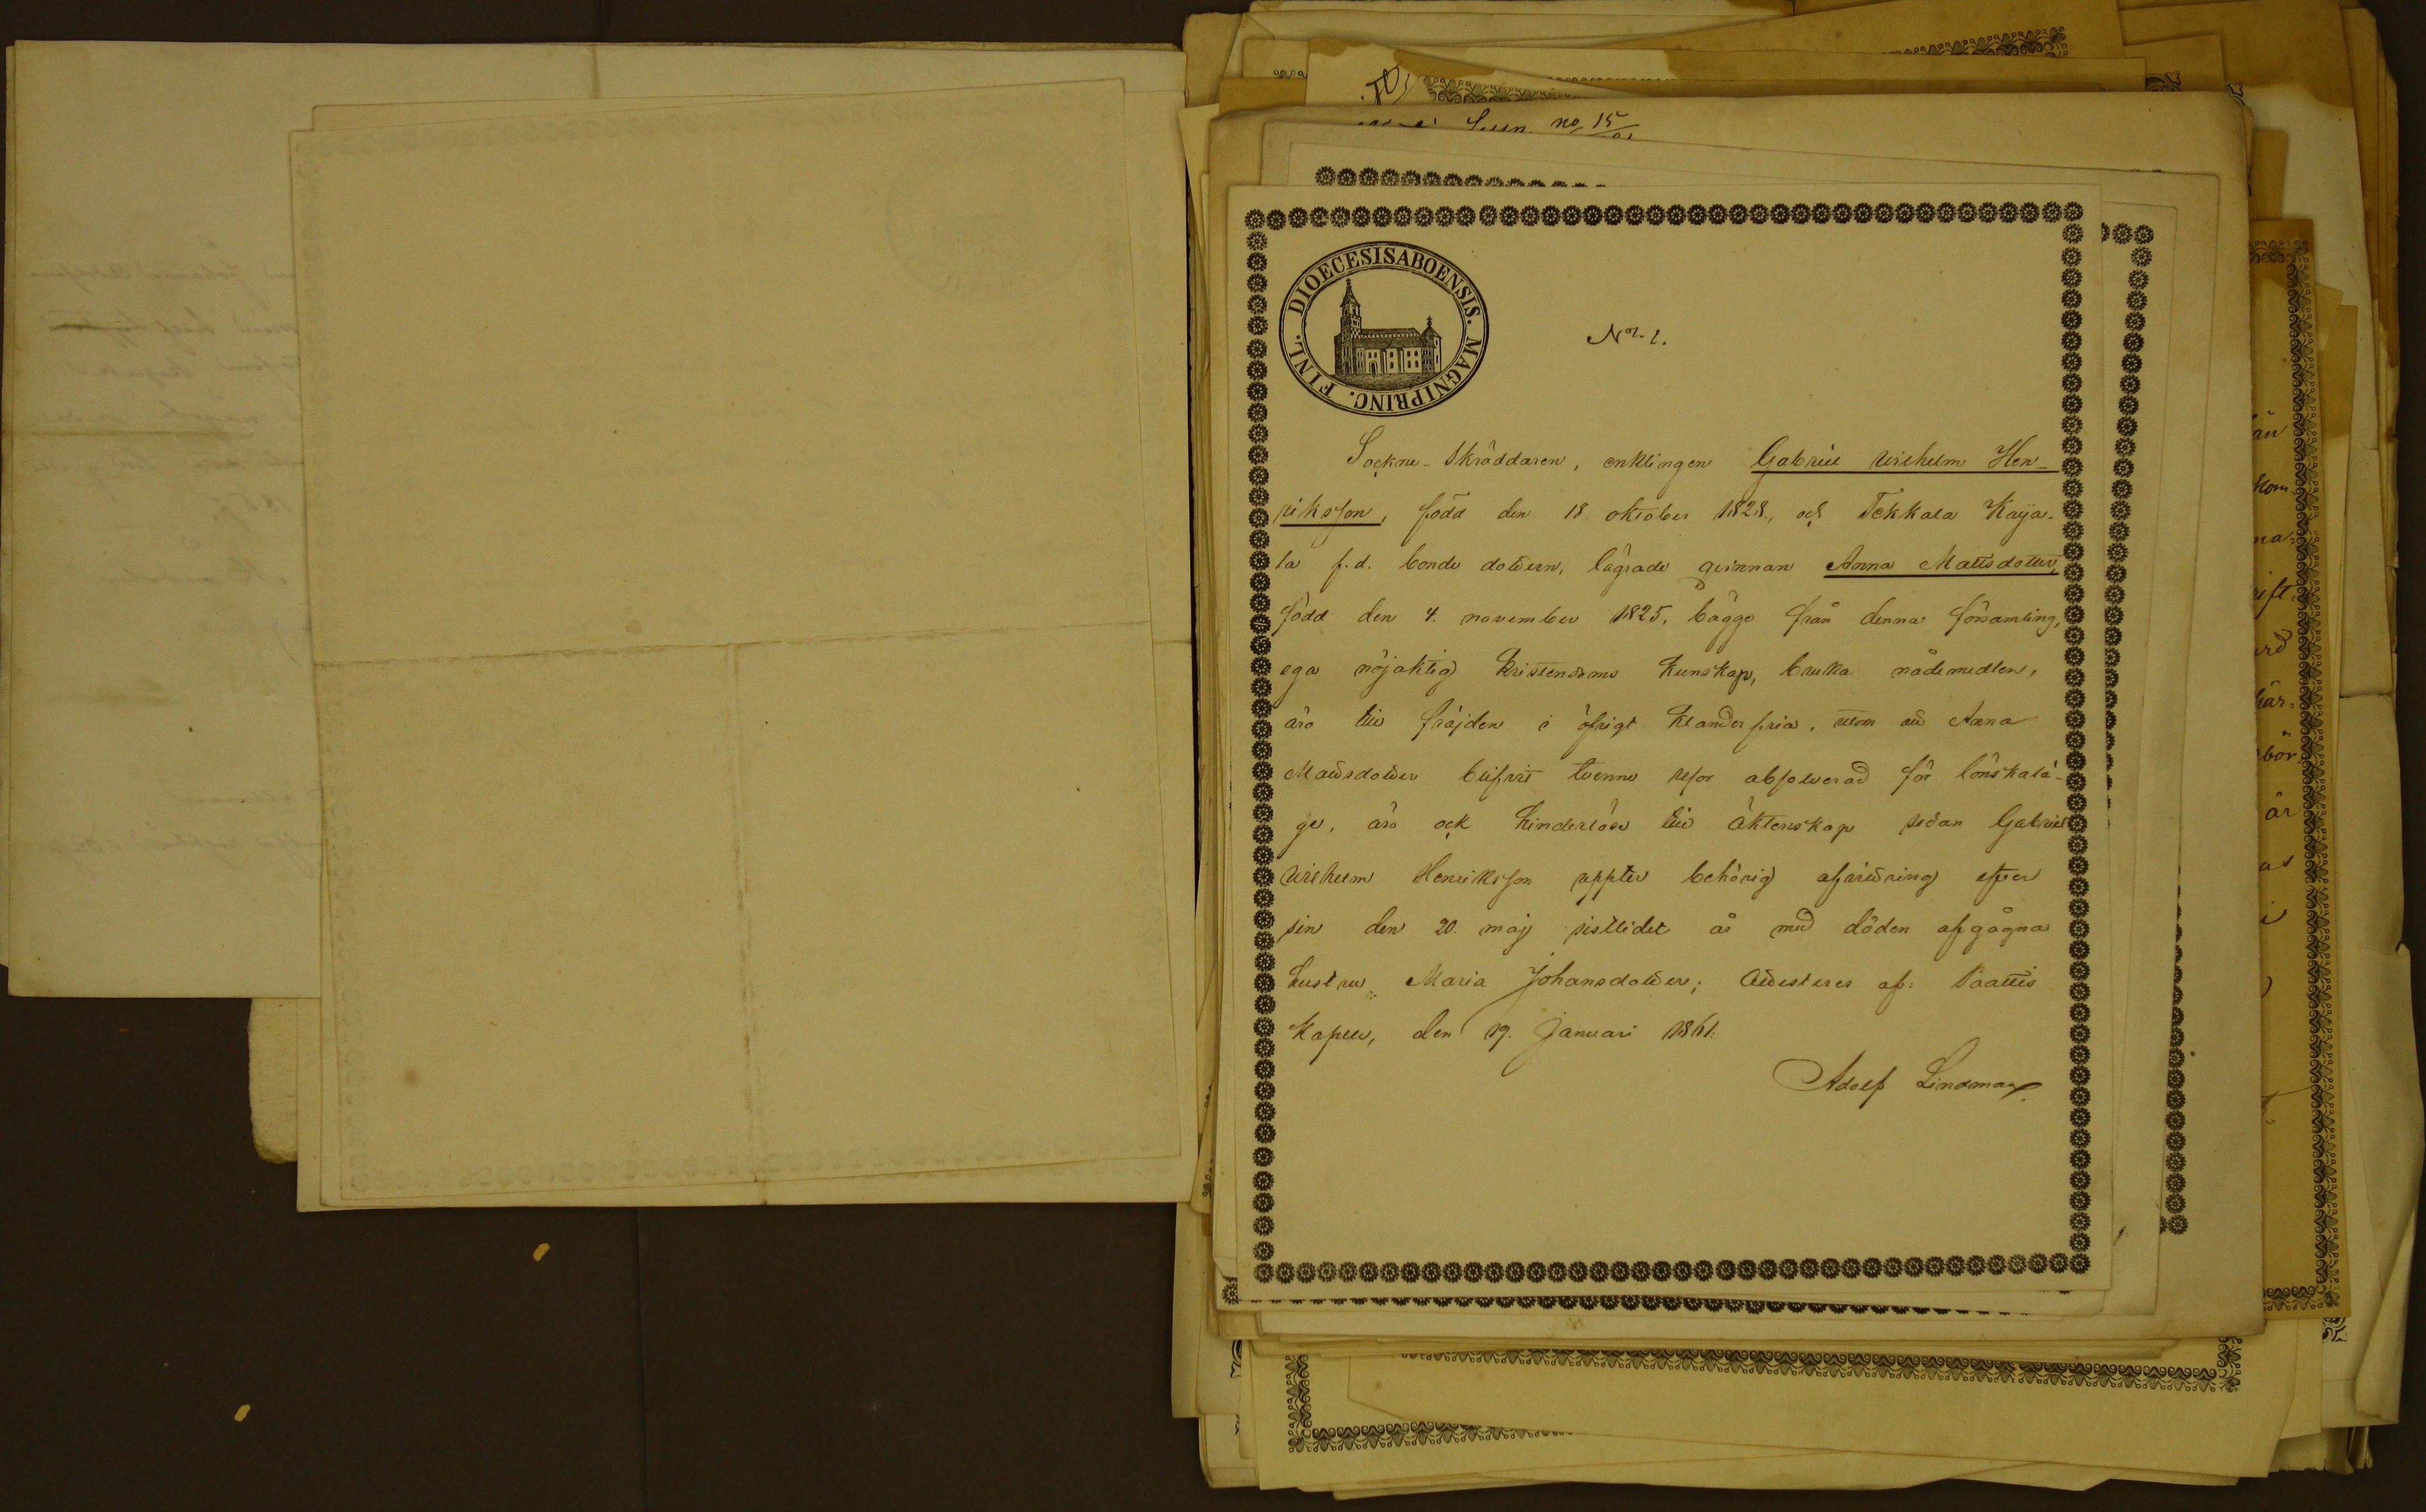 DIOECESIS ABOENSIS. MAGNI PRINC. FINL.
No 1.
Sockne-Skräddaren, enklingen Gabriel Wilhelm Hen-
riksson, född den 18 oktober 1828, och Tekkala Kaija-
la f.d. bonde dottern, lägrade qvinnan Anna Mattsdotter,
född den 4. november 1825, bägge från denna församling,
ega nöjaktig kristendoms kunskap, bruka nådemedlen,
äro till fräjden i öfrigt klanderfria, utom att Anna
Mattsdotter blifvit tvenne resor absolverad för lönskalä-
ge, äro ock hinderlöse till äktenskap sedan Gabriel
Wilhelm Henriksson upptet behörig afvittring efter
sin den 20. maj sistlidet år med döden afgågna
hustru Maria Johansdotter; Attesteres af: Paattis
Kapell, den 19. Januari 1861.
Adolf Lindman.
no 15